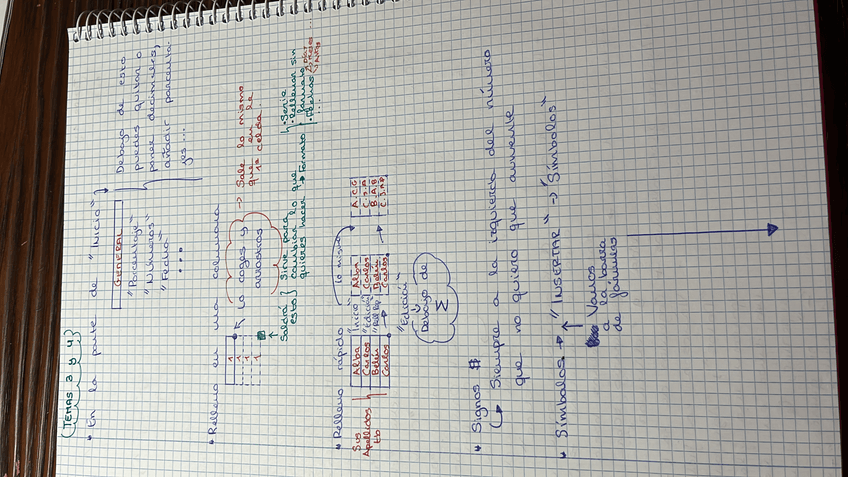 TEMAS 3 y 4
" En la parte de "Inicio"
GENERAL
"Porcentaje"
"Números"
"Fecha"
...
Debajo de esto
puedes quitar o
poner decimales,
añadir porcenta-
jes...
" Relleno en una columna
1
1
1
1
lo coges y
arrastras
→ Sale lo mismo
que en la
1ª celda
Saldrá
esto
Sirve para
cambiar lo que
quieres hacer
→ Formato
• Serie
• Rellenar sin
formato
• Fechas
" Relleno rápido
Sus
Apellidos
Alba
Carlos
Belén
Carlos
"Inicio"
"Edición"
lo mismo
Alba
Carlos
Belén
Carlos
→
A.C.G
C.S.A
B.A.B
C.S.A.B
"Edición"
Debajo de
Σ
" Signos $
↳ Siempre a la izquierda del número
que no quiero que aumente
" Símbolos → "INSERTAR" → "Símbolos"
Vamos
a la barra
de fórmulas